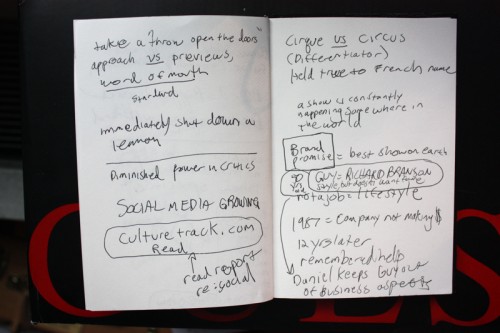 take a throw open the doors"
approach vs previews,
word of mouth
standard
immediately shut down a
lemmon
Diminished power in critics
SOCIAL MEDIA GROWING
Culturetrack.com
Read
read report
re: social
Cirque vs Circus
(Differentiator)
Held true to French name
a show is constantly
happening somewhere in
the world
Brand
promise = best show on earth
50
yrs
old
GUY = RICHARD BRANSON
style, but doesn't want fame
not a job = lifestyle
1987 = Company not making $
12 yrs later
remembered help
Daniel keeps Guy out
of Business aspects